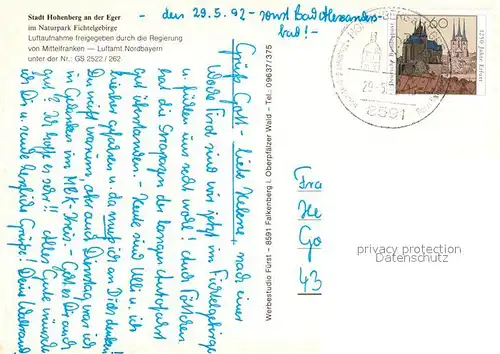 Stadt Hohenberg an der Eger
im Naturpark Fichtelgebirge
Luftaufnahme freigegeben durch die Regierung
von Mittelfranken — Luftamt Nordbayern
unter der Nr.: GS 2522 / 262
- den 29.5.92 - sonst Bad Alexandersbad! -
Grüß Gott - liebe Helene, nach einer
Woche sind wir jetzt im Fichtelgebirge
u. fühlen uns recht wohl! Auch
hat die Strapazen der langen Autofahrt
gut überstanden. - Heute sind Uli u. ich
hierher gefahren u. da muß ich an Dich denken!
Du weißt warum, aber auch Dienstag war ich
in Gedanken im Kreis. - Geht es Dir auch
gut? Ich hoffe es sehr!! Alles Gute wünscht
Dir u. sende herzliche Grüße! Deine
Werbestudio Fürst - 8591 Falkenberg i. Oberpfälzer Wald - Tel.: 09637/375
Fra
He
Go
43
60
1250 Jahre Erfurt
29.-5.
8591
privacy protection
Datenschutz